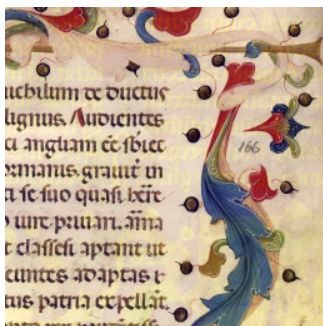 uebilium de ductus
lignus. Audientes
ci angliam ēē sbiec
ormanis. grauit in
ti se suo quasi
iure priuari. āīa
t classes aptant ut
eūntes adaptas
tus patria expellāt.
166